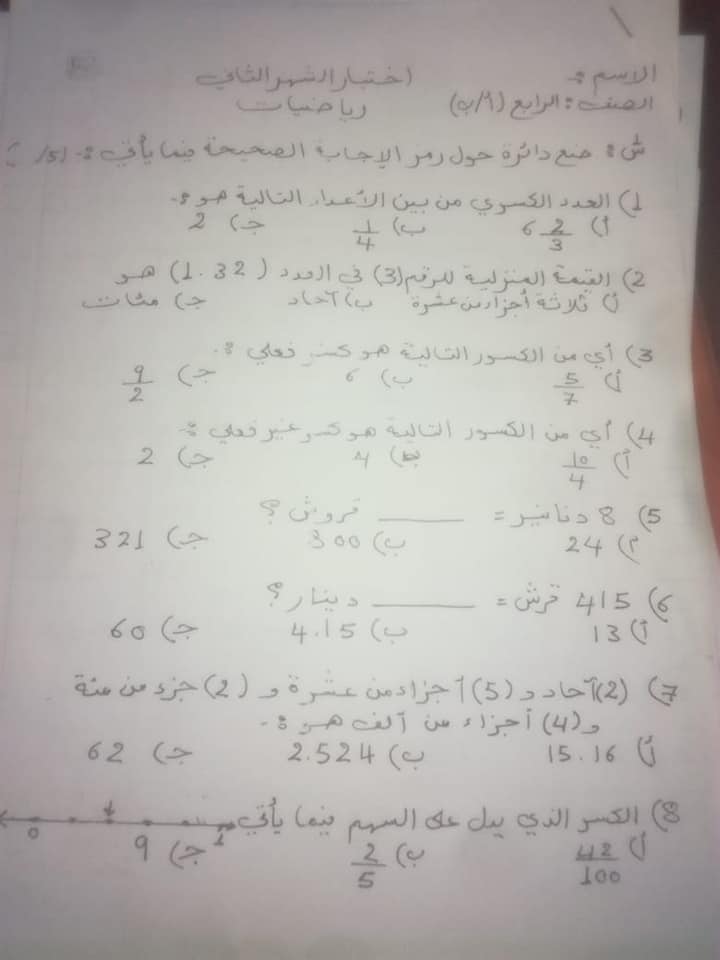 الاسم :-
اختبار الشهر الثاني
الصف : الرابع (أ/ب)
رياضيات
س: ضع دائرة حول رمز الإجابة الصحيحة فيما يأتي :- (15/ )
1) العدد الكسري من بين الأعداد التالية هو :-
أ) 6 2/3 ب) 1/4 جـ) 2
2) القيمة المنزلية للرقم (3) في العدد (1.32) هو
أ) ثلاثة أجزاء من عشرة ب) آحاد جـ) مئات
3) أي من الكسور التالية هو كسر فعلي :-
أ) 5/7 ب) 6 جـ) 9/2
4) أي من الكسور التالية هو كسر غير فعلي :-
أ) 10/4 ب) 4 جـ) 2
5) 8 دنانير = ____ قروش ؟
أ) 24 ب) 800 جـ) 321
6) 415 قرش = ____ دينار ؟
أ) 13 ب) 4.15 جـ) 60
7) (2) آحاد و (5) أجزاء من عشرة و (2) جزء من مئة
و (4) أجزاء من ألف هو :-
أ) 15.16 ب) 2.524 جـ) 62
8) الكسر الذي يدل على السهم فيما يأتي
0 1
أ) 42/100 ب) 2/5 جـ) 9